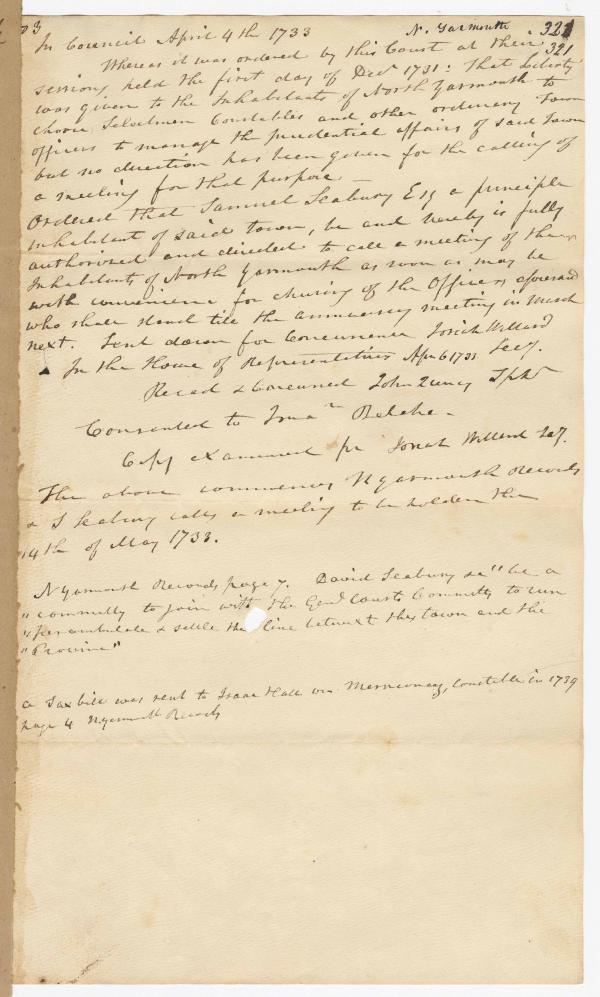 03
N. Yarmouth 321
321
In Council April 4th 1733
Whereas it was ordered by this Court at their
session held the first day of Decr. 1731: That Liberty
was given to the Inhabitants of North Yarmouth to
choose Selectmen Constables and other ordinary Town
officers to manage the prudential affairs of said Town
but no direction has been given for the calling of
a meeting for that purpose —
Ordered that Samuel Seabury Esq a principle
inhabitant of said town, be and hereby is fully
authorized and directed to call a meeting of the
Inhabitants of North Yarmouth as soon as may be
with convenience for chusing of the Officers aforesaid
who shall stand till the anniversary meeting in March
next. Sent down for Concurrence Josiah Willard
In the House of Representatives Apr 6 1733 Secy.
Recad & Concurred John Quincy Spkr
Consented to Belcher —
Copy examined pr Josiah Willard Secy.
The above commences N Yarmouth Records
& S Seabury calls a meeting to be holden the
14th of May 1733.
N Yarmouth Records page 7. David Seabury " be a
" committy to join with the Genl Courts Committy to run
" perambulate & settle the line betwixt this town and the
" Province"
a Tax bill was sent to Isaac Hall on Merriconeag, Constable in 1739
page 4 N Yarmouth Records